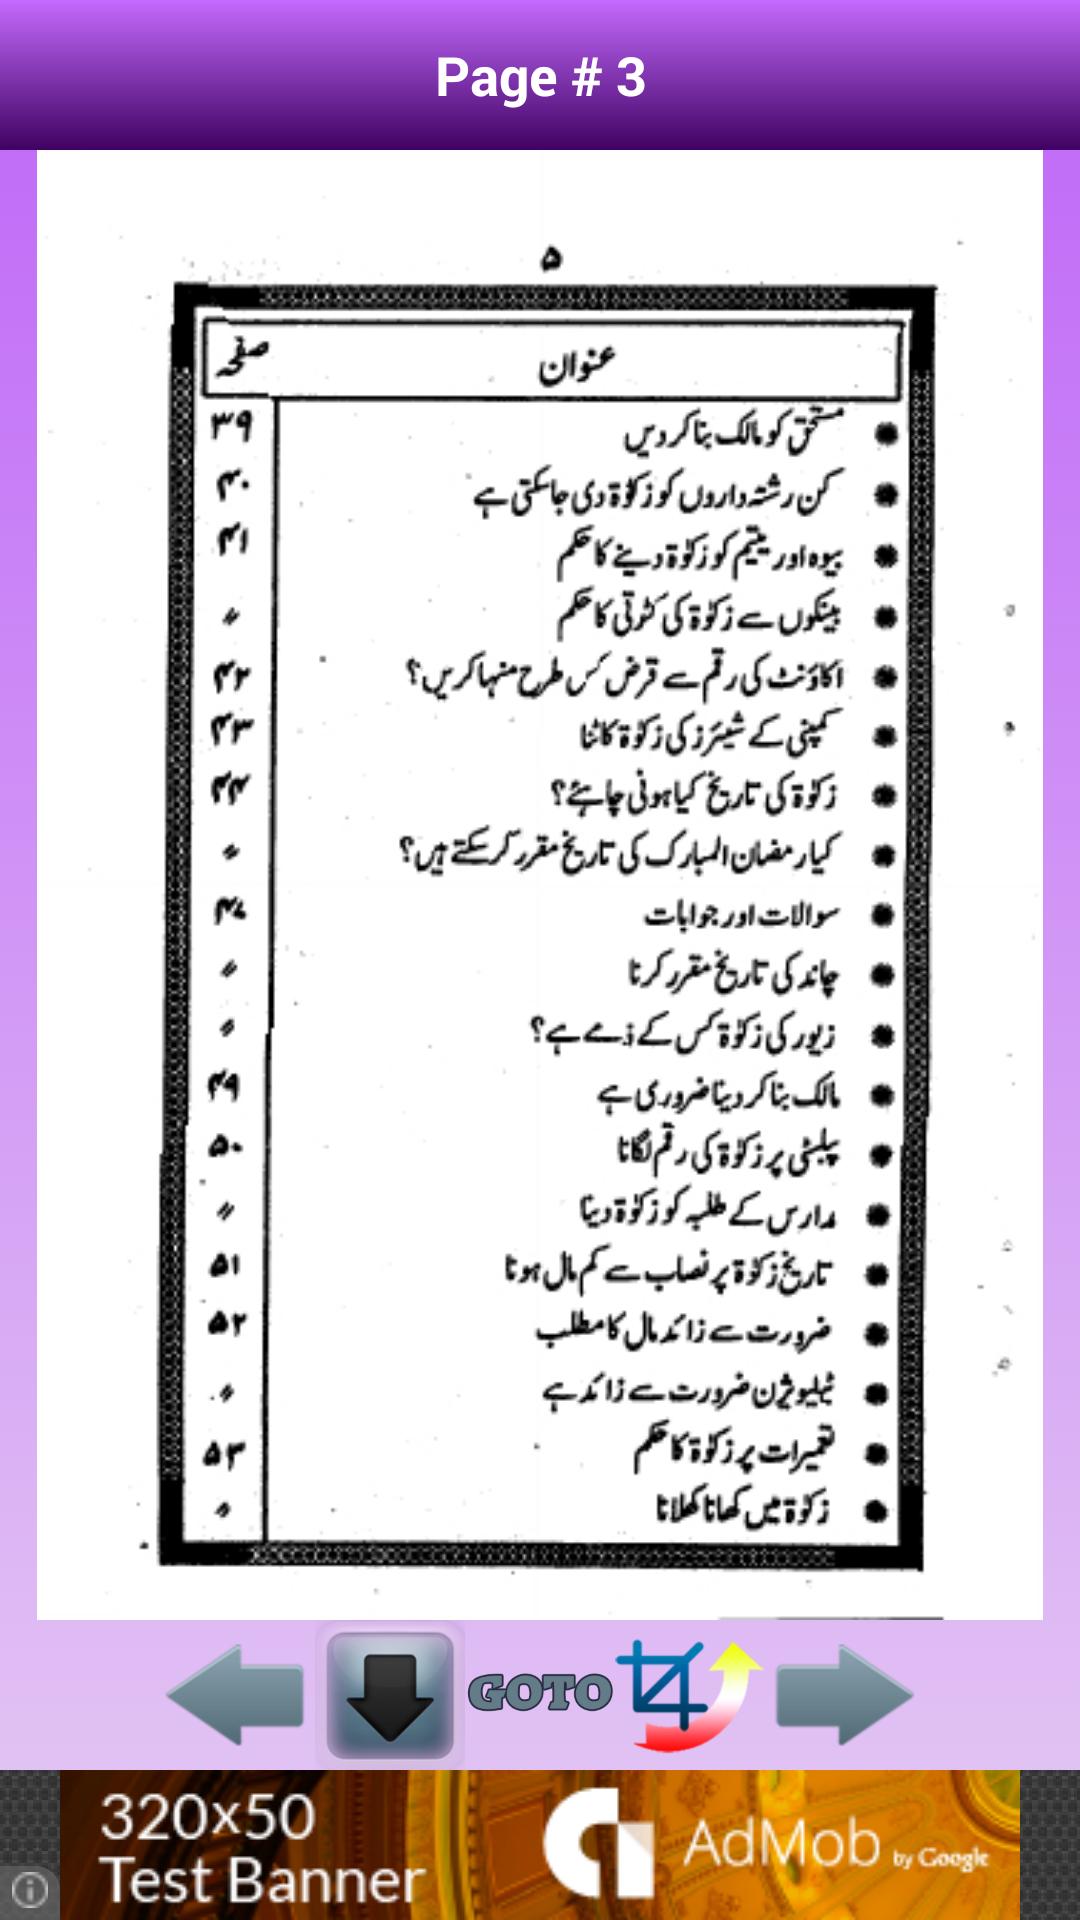 Page # 3
۵
عنوان صفحہ
مستحق کو مالک بنا کر دیں ۳۹
کن رشتہ داروں کو زکوٰۃ دی جاسکتی ہے ۴۰
بیوہ اور یتیم کو زکوٰۃ دینے کا حکم ۴۱
بینکوں سے زکوٰۃ کی کٹوتی کا حکم 〃
اکاؤنٹ کی رقم سے قرض کس طرح منہا کریں؟ ۴۲
کمپنی کے شیئرز کی زکوٰۃ کاٹنا ۴۳
زکوٰۃ کی تاریخ کیا ہونی چاہئے؟ ۴۴
کیا رمضان المبارک کی تاریخ مقرر کرسکتے ہیں؟ 〃
سوالات اور جوابات ۴۷
چاند کی تاریخ مقرر کرنا 〃
زیور کی زکوٰۃ کس کے ذمے ہے؟ 〃
مالک بنا کر دینا ضروری ہے ۴۹
پبلسٹی پر زکوٰۃ کی رقم لگانا ۵۰
مدارس کے طلبہ کو زکوٰۃ دینا 〃
تاریخ زکوٰۃ پر نصاب سے کم مال ہونا ۵۱
ضرورت سے زائد مال کا مطلب ۵۲
ٹیلیویژن ضرورت سے زائد ہے 〃
تعمیرات پر زکوٰۃ کا حکم ۵۳
زکوٰۃ میں کھانا کھلانا 〃
GOTO
320x50
Test Banner
AdMob by Google